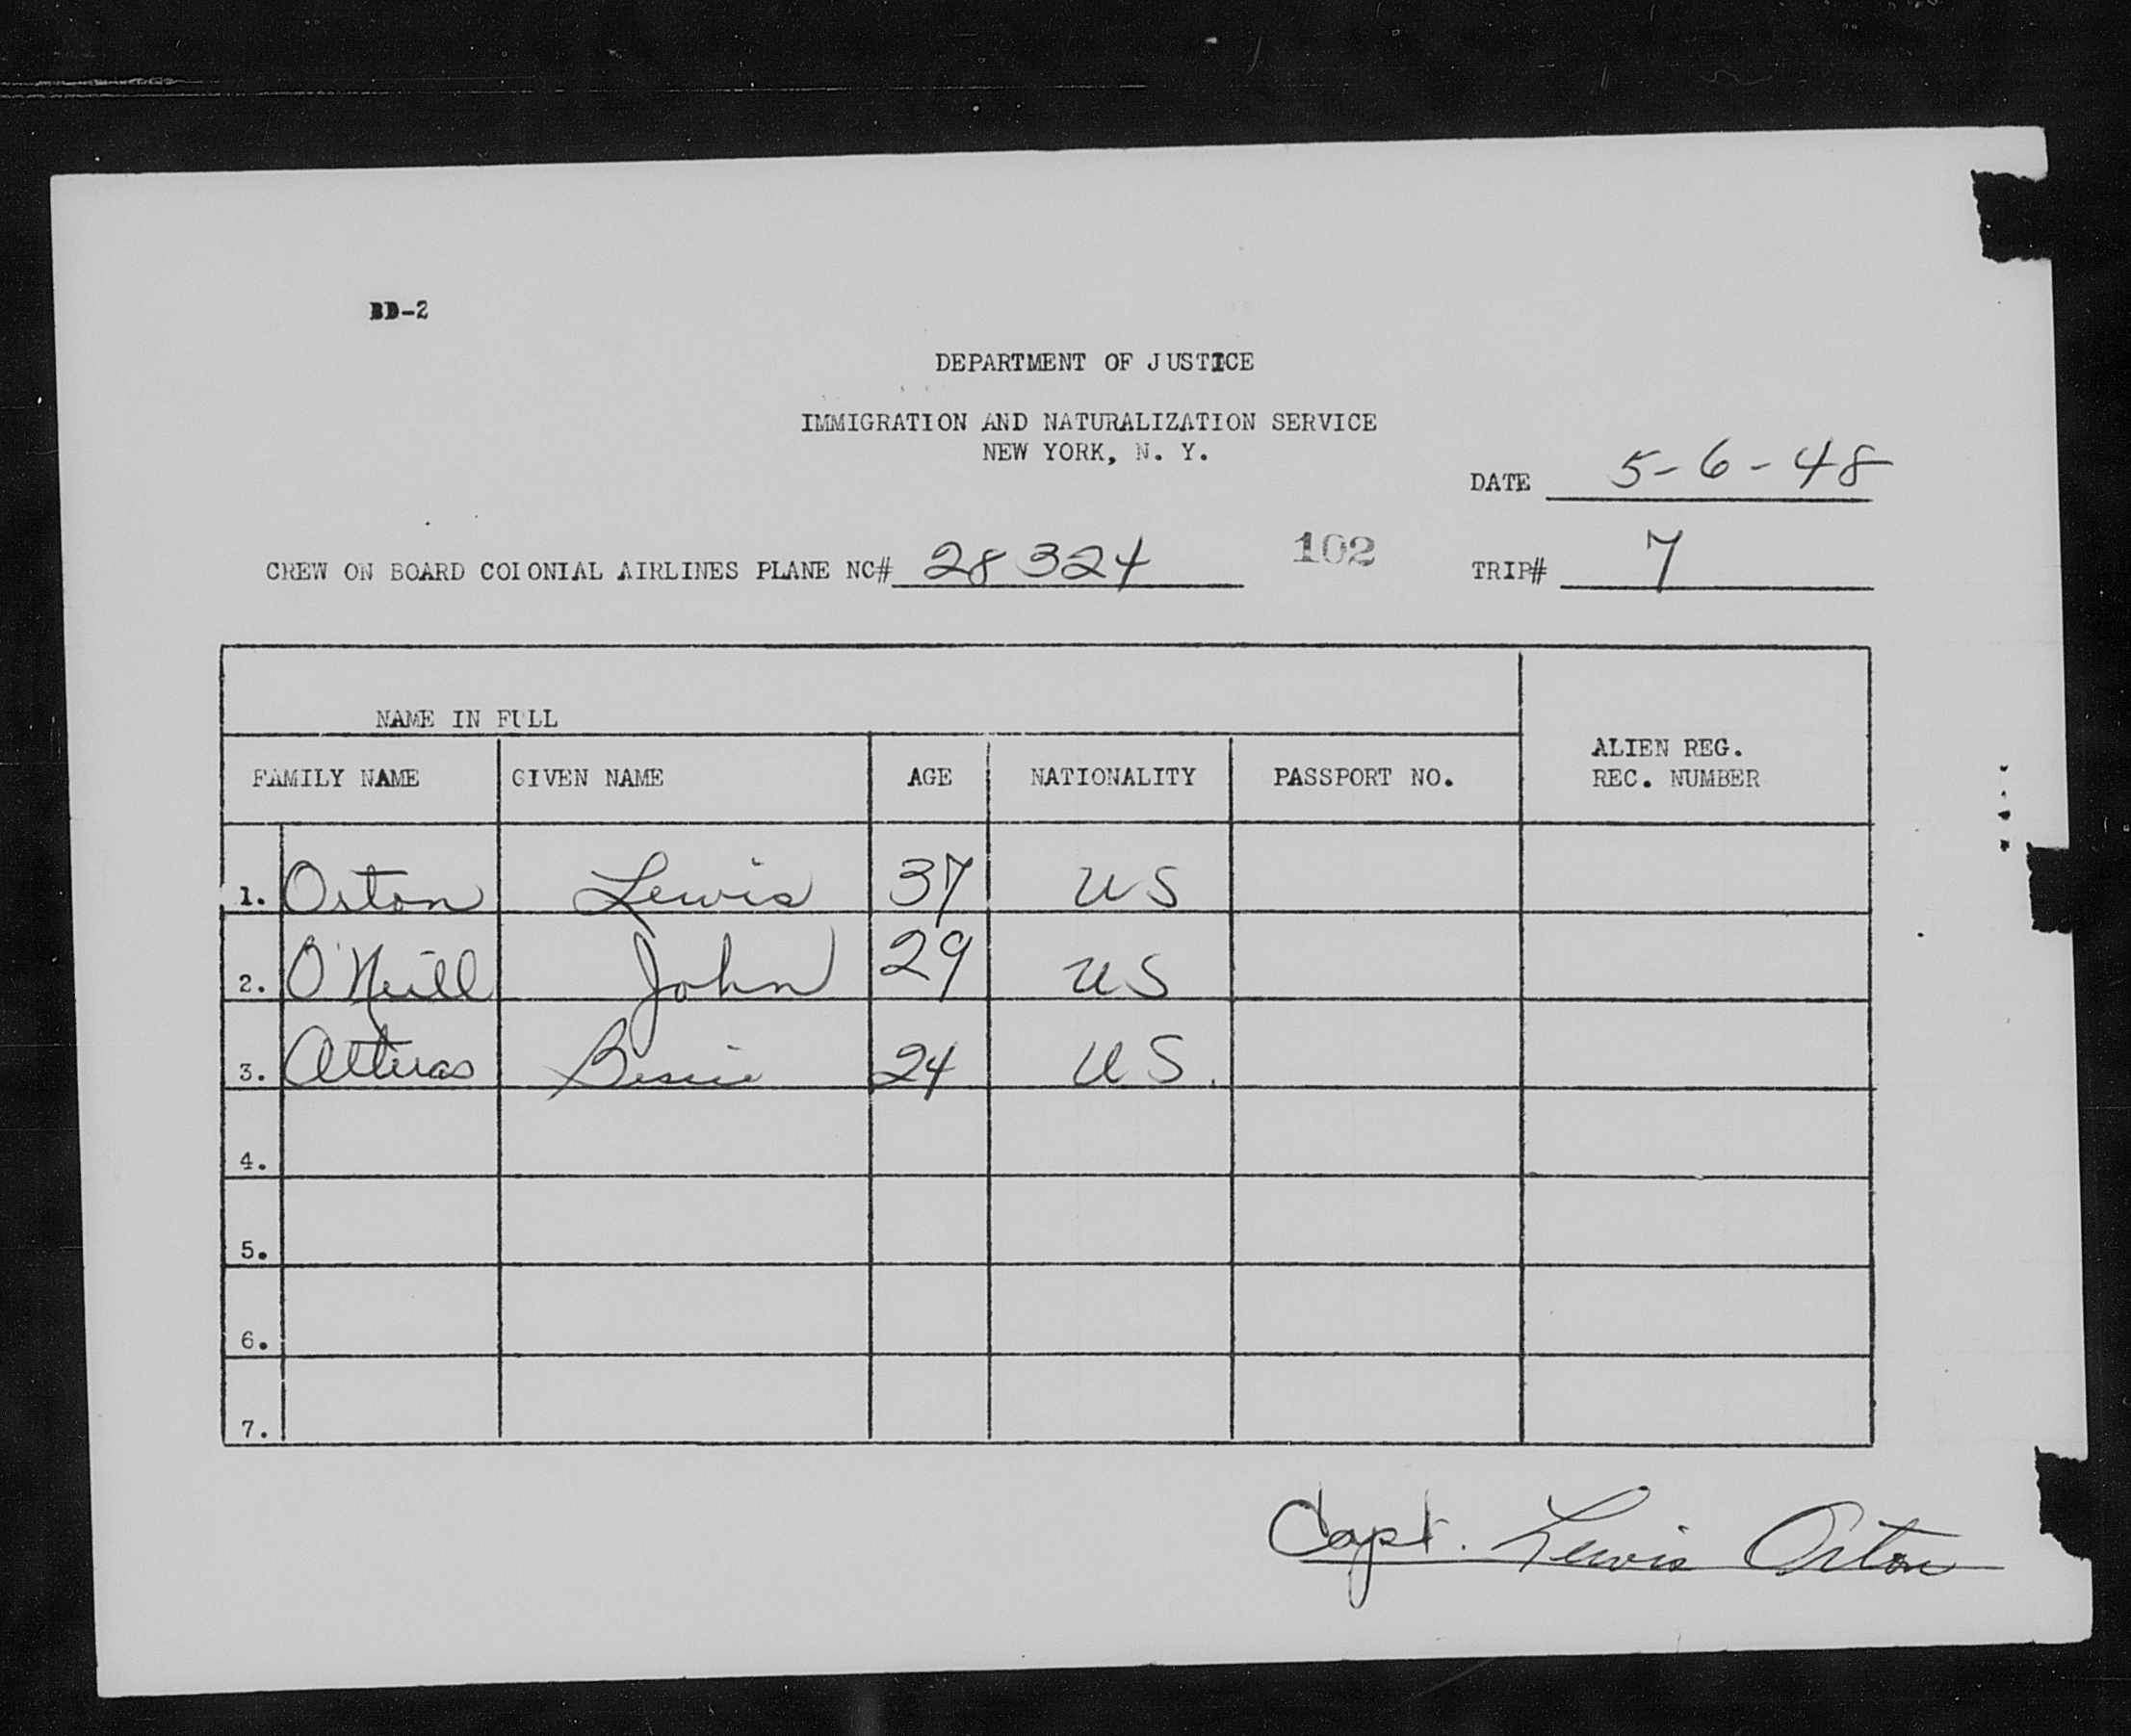 BD-2
DEPARTMENT OF JUSTICE
IMMIGRATION AND NATURALIZATION SERVICE
NEW YORK, N. Y.
DATE 5-6-48
CREW ON BOARD COLONIAL AIRLINES PLANE NC# 28324 102 TRIP# 7
NAME IN FULL
ALIEN REG.
REC. NUMBER
FAMILY NAME GIVEN NAME AGE NATIONALITY PASSPORT NO.
1. Orton Lewis 37 US
2. O'Neill John 29 US
3. Bessie 24 US.
4.
5.
6.
7.
Capt. Lewis Orton